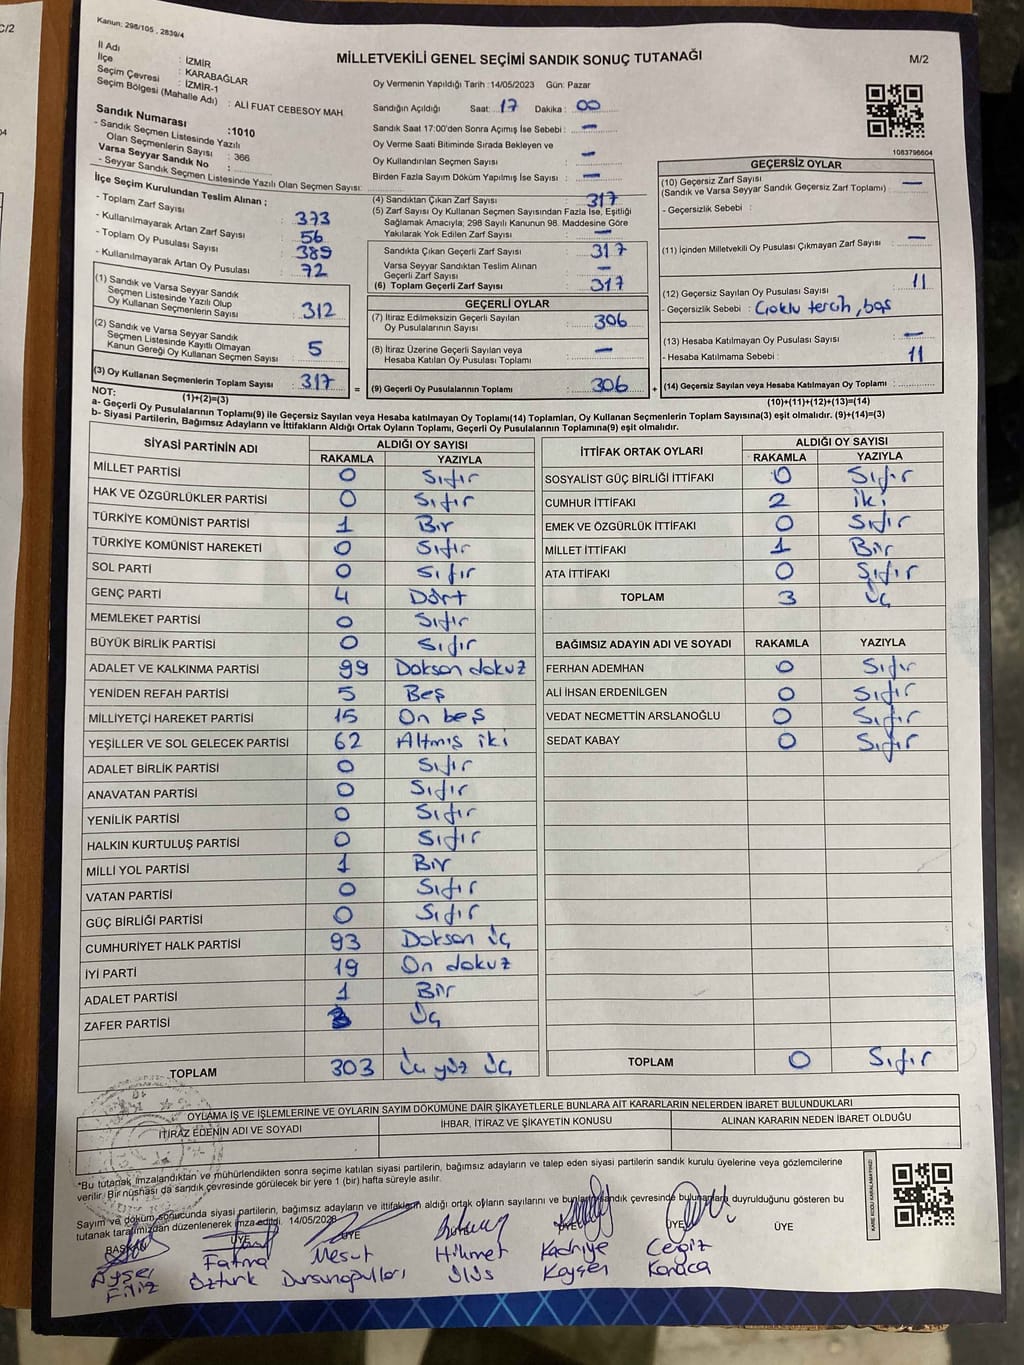 C/2
Kanun: 298/105 , 2839/4
MİLLETVEKİLİ GENEL SEÇİMİ SANDIK SONUÇ TUTANAĞI
M/2
İl Adı : İZMİR
İlçe : KARABAĞLAR
Seçim Çevresi : İZMİR-1
Seçim Bölgesi (Mahalle Adı) : ALİ FUAT CEBESOY MAH
Sandık Numarası :1010
- Sandık Seçmen Listesinde Yazılı
Olan Seçmenlerin Sayısı : 366
Varsa Seyyar Sandık No :
- Seyyar Sandık Seçmen Listesinde Yazılı Olan Seçmen Sayısı:
İlçe Seçim Kurulundan Teslim Alınan ;
- Toplam Zarf Sayısı : 373
- Kullanılmayarak Artan Zarf Sayısı : 56
- Toplam Oy Pusulası Sayısı : 389
- Kullanılmayarak Artan Oy Pusulası : 72
(1) Sandık ve Varsa Seyyar Sandık
Seçmen Listesinde Yazılı Olup
Oy Kullanan Seçmenlerin Sayısı : 312
(2) Sandık ve Varsa Seyyar Sandık
Seçmen Listesinde Kayıtlı Olmayan
Kanun Gereği Oy Kullanan Seçmen Sayısı : 5
(3) Oy Kullanan Seçmenlerin Toplam Sayısı : 317
(1)+(2)=(3)
Oy Vermenin Yapıldığı Tarih :14/05/2023 Gün: Pazar
Sandığın Açıldığı Saat: 17 Dakika : 00
Sandık Saat 17:00'den Sonra Açımış İse Sebebi : —
Oy Verme Saati Bitiminde Sırada Bekleyen ve
Oy Kullandırılan Seçmen Sayısı : —
Birden Fazla Sayım Döküm Yapılmış İse Sayısı : —
(4) Sandıktan Çıkan Zarf Sayısı : 317
(5) Zarf Sayısı Oy Kullanan Seçmen Sayısından Fazla İse, Eşitliği
Sağlamak Amacıyla; 298 Sayılı Kanunun 98. Maddesine Göre
Yakılarak Yok Edilen Zarf Sayısı : —
Sandıkta Çıkan Geçerli Zarf Sayısı : 317
Varsa Seyyar Sandıktan Teslim Alınan
Geçerli Zarf Sayısı : —
(6) Toplam Geçerli Zarf Sayısı : 317
GEÇERLİ OYLAR
(7) İtiraz Edilmeksizin Geçerli Sayılan
Oy Pusulalarının Sayısı : 306
(8) İtiraz Üzerine Geçerli Sayılan veya
Hesaba Katılan Oy Pusulası Toplamı : —
= (9) Geçerli Oy Pusulalarının Toplamı : 306 +
1083796604
GEÇERSİZ OYLAR
(10) Geçersiz Zarf Sayısı : —
(Sandık ve Varsa Seyyar Sandık Geçersiz Zarf Toplamı)
- Geçersizlik Sebebi :
(11) İçinden Milletvekili Oy Pusulası Çıkmayan Zarf Sayısı : —
(12) Geçersiz Sayılan Oy Pusulası Sayısı : 11
- Geçersizlik Sebebi : Çoklu tercih, boş
(13) Hesaba Katılmayan Oy Pusulası Sayısı : —
- Hesaba Katılmama Sebebi : 11
(14) Geçersiz Sayılan veya Hesaba Katılmayan Oy Toplamı :
(10)+(11)+(12)+(13)=(14)
NOT:
a- Geçerli Oy Pusulalarının Toplamı(9) ile Geçersiz Sayılan veya Hesaba katılmayan Oy Toplamı(14) Toplamları, Oy Kullanan Seçmenlerin Toplam Sayısına(3) eşit olmalıdır. (9)+(14)=(3)
b- Siyasi Partilerin, Bağımsız Adayların ve İttifakların Aldığı Ortak Oyların Toplamı, Geçerli Oy Pusulalarının Toplamına(9) eşit olmalıdır.
SİYASİ PARTİNİN ADI ALDIĞI OY SAYISI
RAKAMLA YAZIYLA
MİLLET PARTİSİ 0 Sıfır
HAK VE ÖZGÜRLÜKLER PARTİSİ 0 Sıfır
TÜRKİYE KOMÜNİST PARTİSİ 1 Bir
TÜRKİYE KOMÜNİST HAREKETİ 0 Sıfır
SOL PARTİ 0 Sıfır
GENÇ PARTİ 4 Dört
MEMLEKET PARTİSİ 0 Sıfır
BÜYÜK BİRLİK PARTİSİ 0 Sıfır
ADALET VE KALKINMA PARTİSİ 99 Doksan dokuz
YENİDEN REFAH PARTİSİ 5 Beş
MİLLİYETÇİ HAREKET PARTİSİ 15 On beş
YEŞİLLER VE SOL GELECEK PARTİSİ 62 Altmış iki
ADALET BİRLİK PARTİSİ 0 Sıfır
ANAVATAN PARTİSİ 0 Sıfır
YENİLİK PARTİSİ 0 Sıfır
HALKIN KURTULUŞ PARTİSİ 0 Sıfır
MİLLİ YOL PARTİSİ 1 Bir
VATAN PARTİSİ 0 Sıfır
GÜÇ BİRLİĞİ PARTİSİ 0 Sıfır
CUMHURİYET HALK PARTİSİ 93 Doksan üç
İYİ PARTİ 19 On dokuz
ADALET PARTİSİ 1 Bir
ZAFER PARTİSİ 3 Üç
TOPLAM 303 Üç yüz üç
İTTİFAK ORTAK OYLARI ALDIĞI OY SAYISI
RAKAMLA YAZIYLA
SOSYALİST GÜÇ BİRLİĞİ İTTİFAKI 0 Sıfır
CUMHUR İTTİFAKI 2 iki
EMEK VE ÖZGÜRLÜK İTTİFAKI 0 Sıfır
MİLLET İTTİFAKI 1 Bir
ATA İTTİFAKI 0 Sıfır
TOPLAM 3 Üç
BAĞIMSIZ ADAYIN ADI VE SOYADI RAKAMLA YAZIYLA
FERHAN ADEMHAN 0 Sıfır
ALİ İHSAN ERDENİLGEN 0 Sıfır
VEDAT NECMETTİN ARSLANOĞLU 0 Sıfır
SEDAT KABAY 0 Sıfır
TOPLAM 0 Sıfır
OYLAMA İŞ VE İŞLEMLERİNE VE OYLARIN SAYIM DÖKÜMÜNE DAİR ŞİKAYETLERLE BUNLARA AİT KARARLARIN NELERDEN İBARET BULUNDUKLARI
İTİRAZ EDENİN ADI VE SOYADI İHBAR, İTİRAZ VE ŞİKAYETİN KONUSU ALINAN KARARIN NEDEN İBARET OLDUĞU
*Bu tutanak imzalandıktan ve mühürlendikten sonra seçime katılan siyasi partilerin, bağımsız adayların ve talep eden siyasi partilerin sandık kurulu üyelerine veya gözlemcilerine
verilir. Bir nüshası da sandık çevresinde görülecek bir yere 1 (bir) hafta süreyle asılır.
Sayım ve döküm sonucunda siyasi partilerin, bağımsız adayların ve ittifakların aldığı ortak oyların sayılarını ve bunların sandık çevresinde bulunanlara duyrulduğunu gösteren bu
tutanak tarafımızdan düzenlenerek imza edildi. 14/05/2023
BAŞKAN ÜYE ÜYE ÜYE ÜYE ÜYE
Ayşel Fatma Mesut Hikmet Kadriye Cegiz
Filiz Öztürk Dursunoğulları Kayşen Karaca
KARE KODU KARALAMAYINIZ!